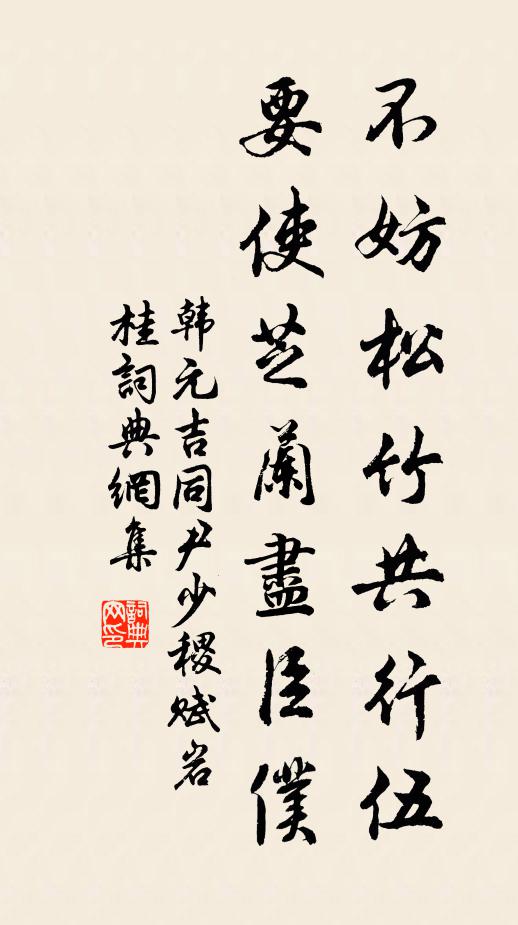 不妨松竹共行伍
要使芝蘭盡臣僕
韩元吉同尹少稷赋岩
桂詞典網集
詞典网印